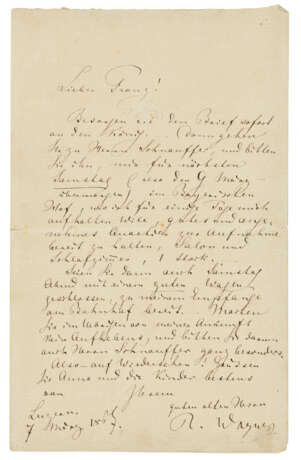 Lieber Franz!
Besorgen Sie den Brief sofort
an den König. (Dann gehen
Sie zu Herrn Schnauffer, und bitten
Sie ihn, mir für nächsten
Samstag (also den 9 März
übermorgen) im Bayerischen
Hof, wo ich für einige Tage mich
aufhalten will, gutes und ange-
nehmes zur Aufnahme
bereit zu halten, Salon und
Schlafzimmer, 1 Stock.
Seien Sie dann auch Samstag
Abend mit einem guten Wagen,
geschlossen, zu meinem Empfange
am Bahnhof bereit. Machen
Sie im Uebrigen von meiner Ankunft
kein Aufhebens, und bitten Sie darum
auch Herrn Schnauffer ganz besonders.
Also auf Wiedersehen! Grüssen
Sie Anna und die Kinder bestens
von Ihrem
guten alten Herrn
Luzern. R. Wagner
7 März 1867.